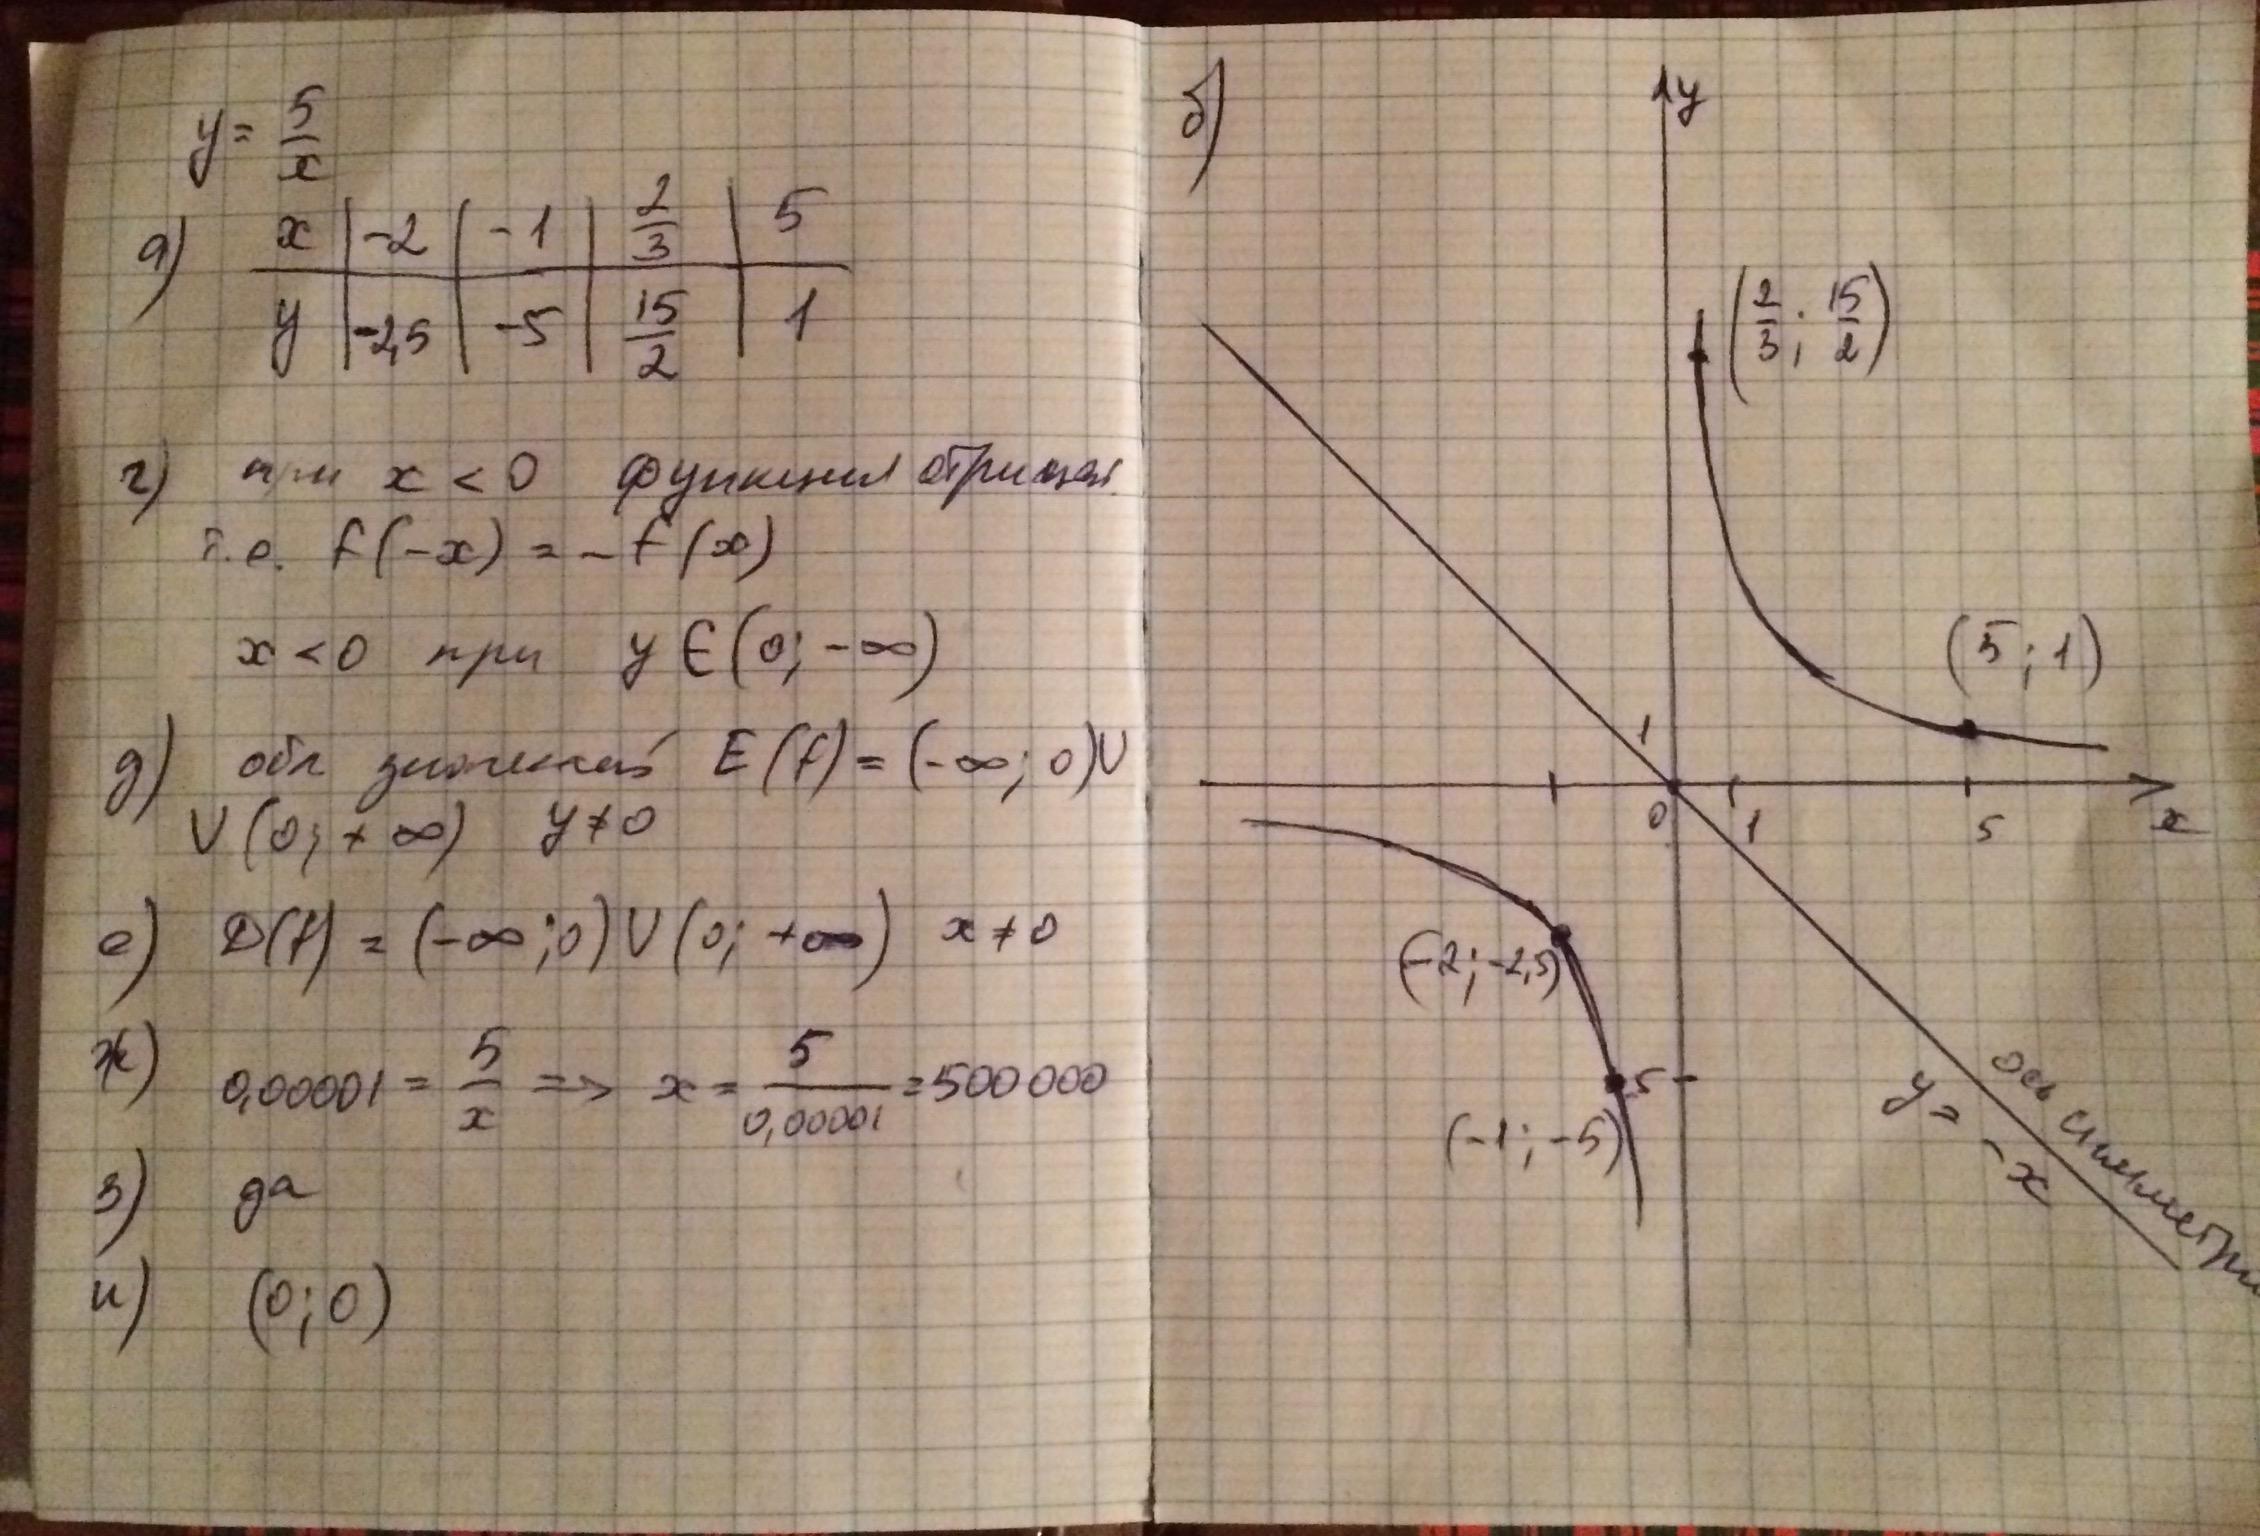 y = 5/x
а) x | -2 | -1 | 2/3 | 5
y | -2,5 | -5 | 15/2 | 1
г) при x < 0 функция отрицат.
т.е. f(-x) = -f(x)
x < 0 при y ∈ (0; -∞)
д) обл значений E(f) = (-∞; 0) U
U (0; +∞) y ≠ 0
е) D(f) = (-∞; 0) U (0; +∞) x ≠ 0
ж) 0,00001 = 5/x => x = 5/0,00001 = 500 000
з) да
и) (0; 0)
б)
y
(2/3; 15/2)
(5; 1)
1
0 1 5 x
(-2; -2,5)
-5
(-1; -5)
ось симметрии
y = -x